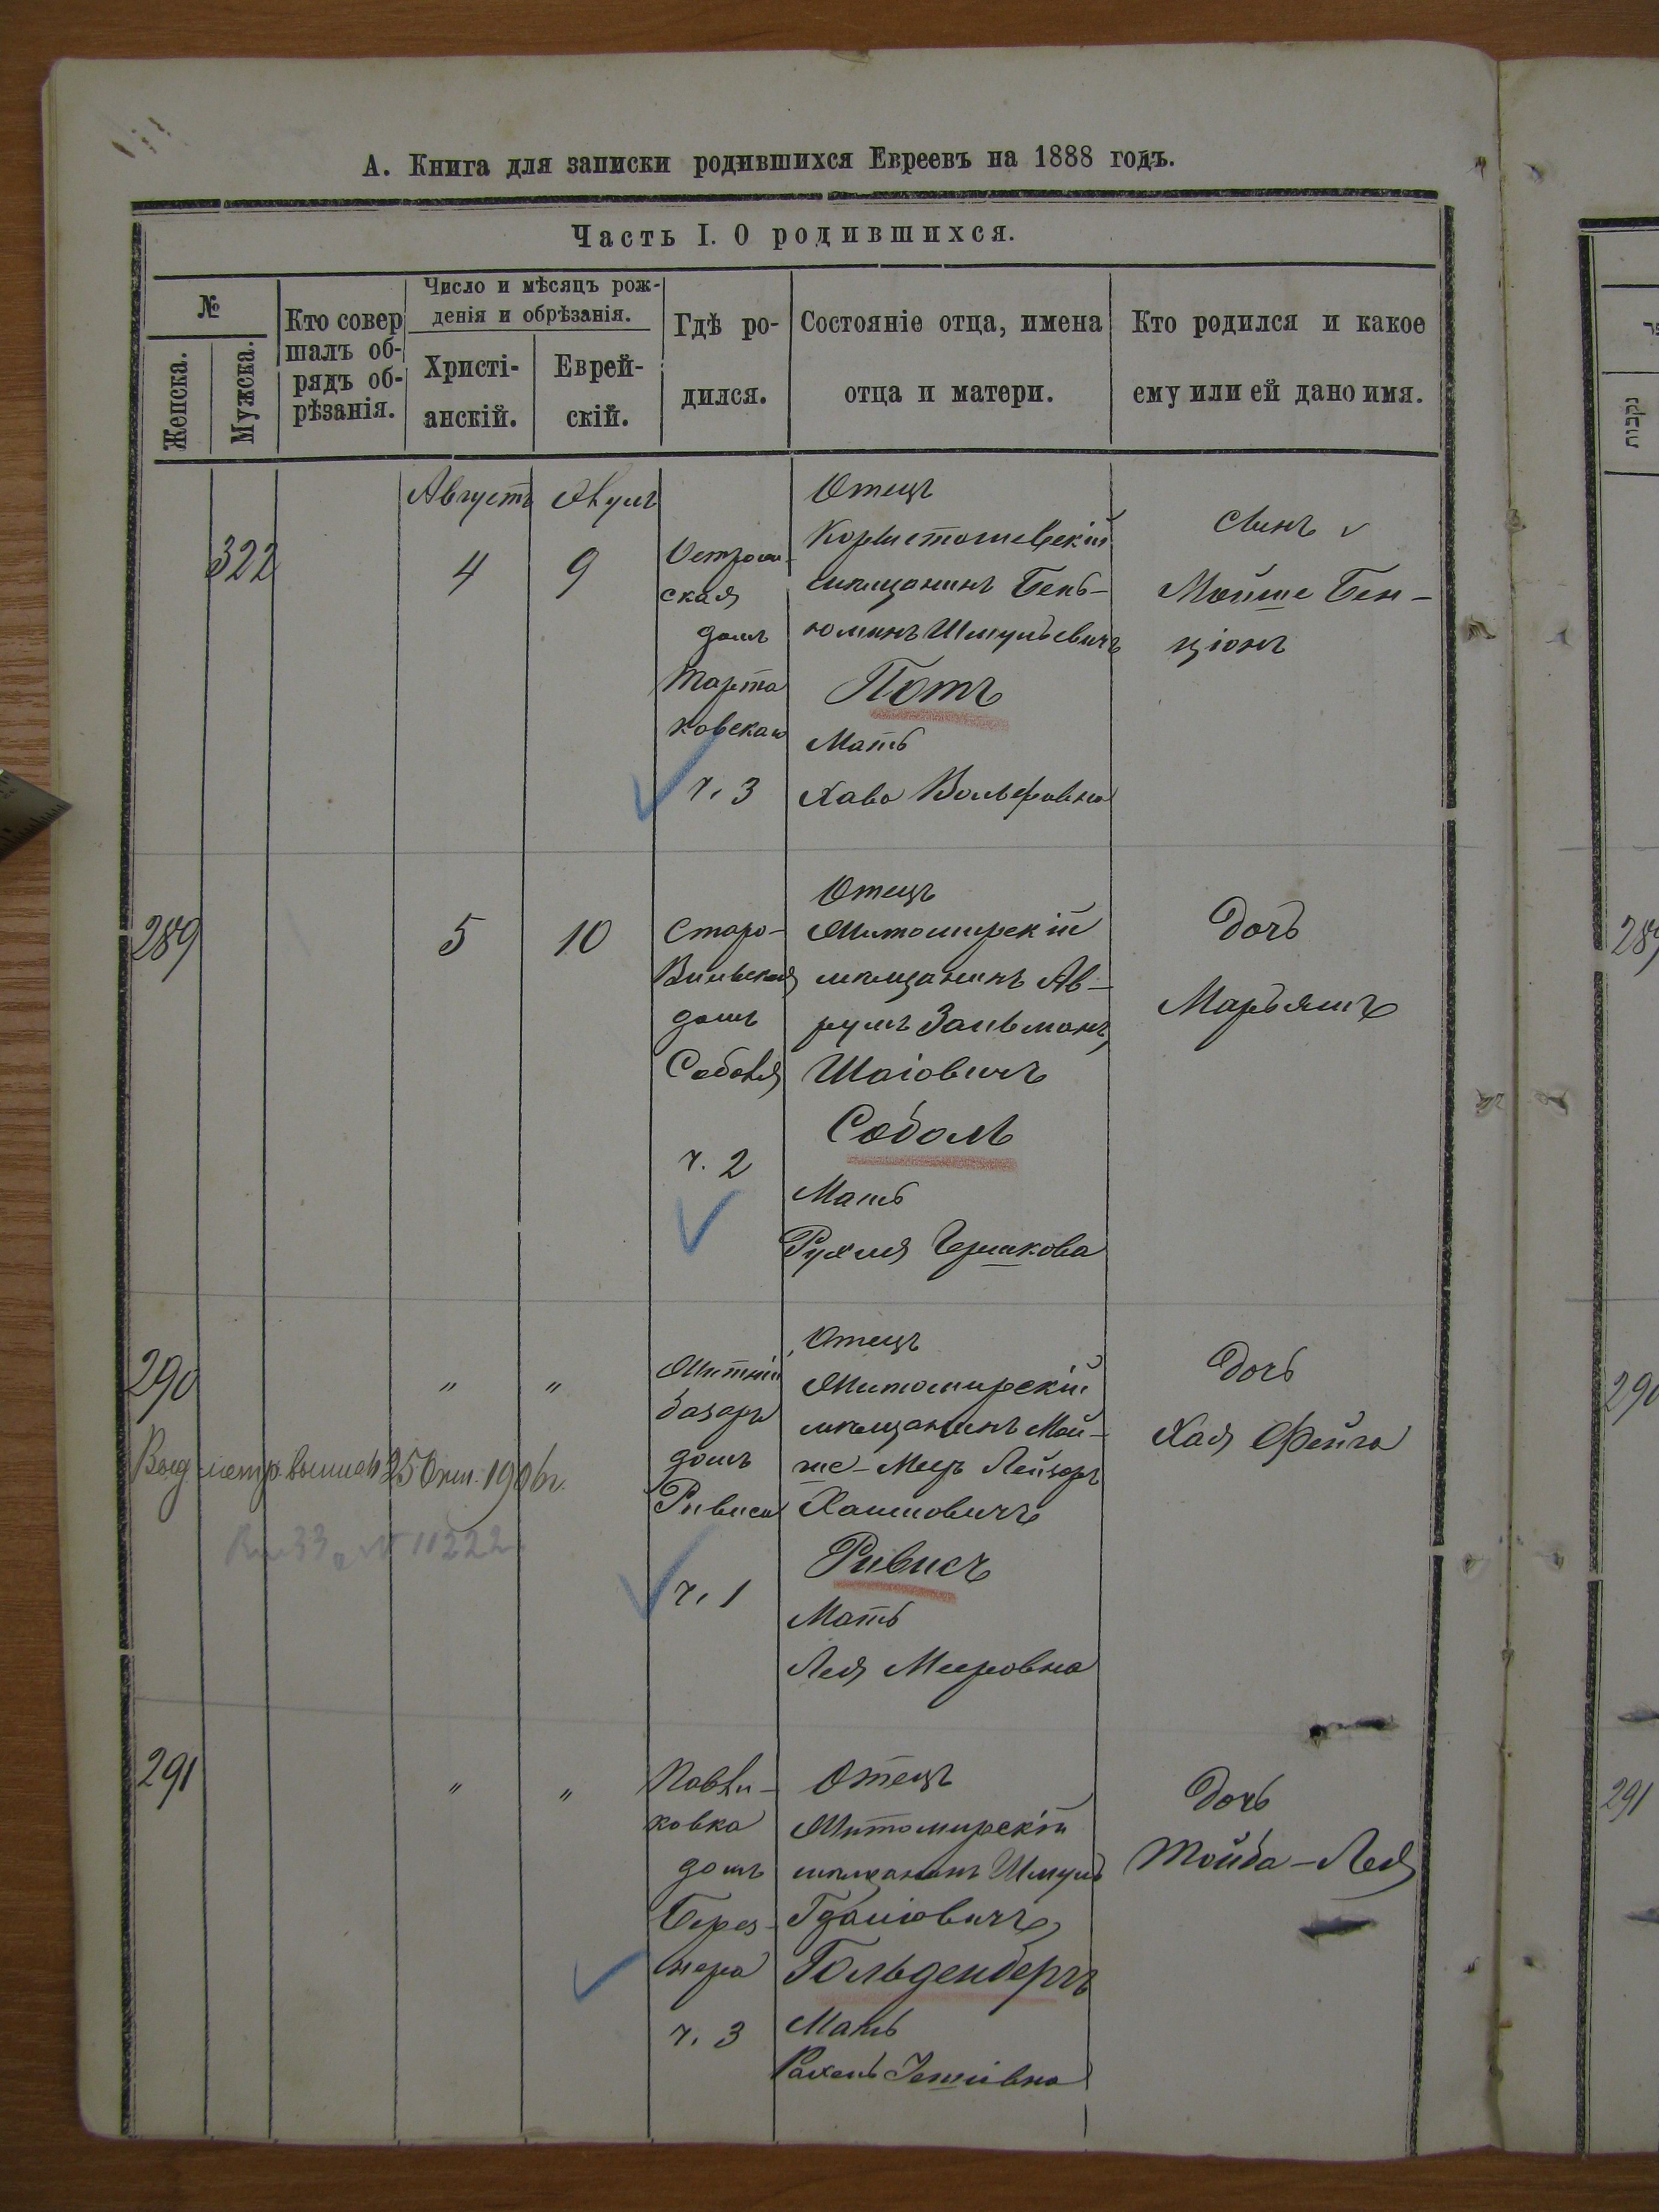 А. Книга для записки родившихся Евреевъ на 1888 годъ.
Часть I. О родившихся.
№
Женска.
Мужска.
Кто совер
шалъ об-
рядъ об-
рѣзанія.
Число и мѣсяцъ рож-
денія и обрѣзанія.
Христі-
анскій.
Еврей-
скій.
Гдѣ ро-
дился.
Состояніе отца, имена
отца и матери.
Кто родился и какое
ему или ей дано имя.
322
Августъ
4
9
ская
домъ
Тарта
ковскаго
ч. 3
Отецъ
Коростошевскій
мѣщанинъ Бень-
юминъ Шмульевичъ
Потъ
Мать
Хава Вольфовна
Сынъ
Мойше Бен-
ціонъ
289
5
10
Старо-
Вильская
домъ
Соболя
ч. 2
Отецъ
Житомирскій
мѣщанинъ Ав-
румъ Зальманъ
Шаіовичъ
Соболь
Мать
Рухля Гершкова
Дочь
Марьямъ
290
"
"
Житній
базаръ
домъ
Ривиса
ч. 1
Отецъ
Житомирскій
мѣщанинъ Мой-
ше-Мееръ Лейзоръ
Хаимовичъ
Ривисъ
Мать
Лея Мееровна
Дочь
Хая Фейга
метр. выпись 25 Окт. 1906 г.
№ 11222
291
"
"
Павли-
ковка
домъ
Берез-
нера
ч. 3
Отецъ
Житомирскій
мѣщанинъ Шмуль
Гдаліовичъ
Гольденбергъ
Мать
Рахель
Дочь
Тойба-Лея
289
290
291
נקבות